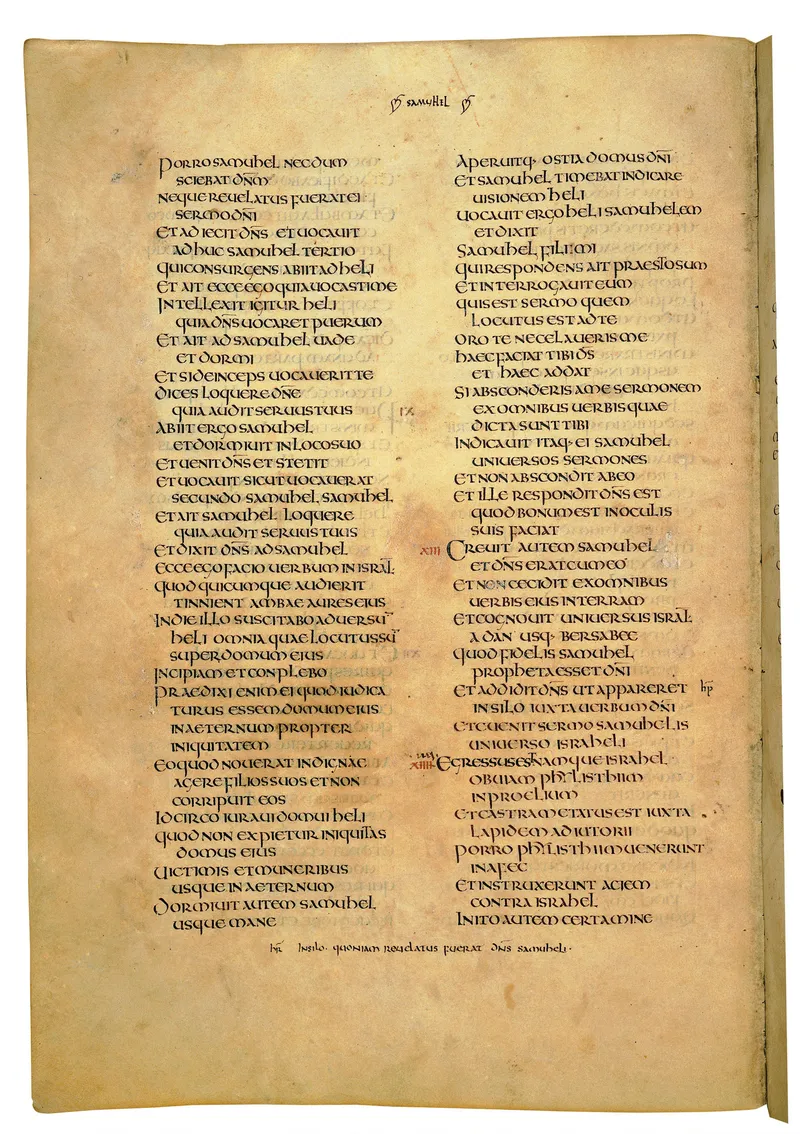 SAMUHEL
PORRO SAMUHEL NECDUM
SCIEBAT DN̅M
NEQUE REUELATUS FUERAT EI
SERMO DN̅I
ET ADIECIT DN̅S ET UOCAUIT
ADHUC SAMUHEL TERTIO
QUI CONSURGENS ABIIT AD HELI
ET AIT ECCE EGO QUIA UOCASTI ME
INTELLEXIT IGITUR HELI
QUIA DN̅S UOCARET PUERUM
ET AIT AD SAMUHEL UADE
ET DORMI
ET SI DEINCEPS UOCAUERIT TE
DICES LOQUERE DN̅E
QUIA AUDIT SERUUS TUUS
ABIIT ERGO SAMUHEL
ET DORMIUIT IN LOCO SUO
ET UENIT DN̅S ET STETIT
ET UOCAUIT SICUT UOCAUERAT
SECUNDO SAMUHEL SAMUHEL
ET AIT SAMUHEL LOQUERE
QUIA AUDIT SERUUS TUUS
ET DIXIT DN̅S AD SAMUHEL
ECCE EGO FACIO UERBUM IN ISRA̅L·
QUOD QUICUMQUE AUDIERIT
TINNIENT AMBAE AURES EIUS
IN DIE ILLO SUSCITABO ADUERSU̅
HELI OMNIA QUAE LOCUTUS SU̅
SUPER DOMUM EIUS
INCIPIAM ET CONPLEBO
PRAEDIXI ENIM EI QUOD IUDICA
TURUS ESSEM DOMUM EIUS
IN AETERNUM PROPTER
INIQUITATEM
EO QUOD NOUERAT INDIGNAE
AGERE FILIOS SUOS ET NON
CORRIPUIT EOS
IDCIRCO IURAUI DOMUI HELI
QUOD NON EXPIETUR INIQUITAS
DOMUS EIUS
UICTIMIS ET MUNERIBUS
USQUE IN AETERNUM
DORMIUIT AUTEM SAMUHEL
USQUE MANE
APERUITQ· OSTIA DOMUS DN̅I
ET SAMUHEL TIMEBAT INDICARE
UISIONEM HELI
UOCAUIT ERGO HELI SAMUHELEM
ET DIXIT
SAMUHEL FILI MI
QUI RESPONDENS AIT PRAESTO SUM
ET INTERROGAUIT EUM
QUIS EST SERMO QUEM
LOCUTUS EST AD TE
ORO TE NE CELAUERIS ME
HAEC FACIAT TIBI D̅S
ET HAEC ADDAT
SI ABSCONDERIS A ME SERMONEM
IX
EX OMNIBUS UERBIS QUAE
DICTA SUNT TIBI
INDICAUIT ITAQ· EI SAMUHEL
UNIUERSOS SERMONES
ET NON ABSCONDIT AB EO
ET ILLE RESPONDIT DN̅S EST
QUOD BONUM EST IN OCULIS
SUIS FACIAT
XIII CREUIT AUTEM SAMUHEL
ET DN̅S ERAT CUM EO
ET NON CECIDIT EX OMNIBUS
UERBIS EIUS IN TERRAM
ET COGNOUIT UNIUERSUS ISRA̅L·
A DAN USQ· BERSABEE
QUOD FIDELIS SAMUHEL
PROPHETA ESSET DN̅I
ET ADDIDIT DN̅S UT APPARERET h̅p
IN SILO IUXTA UERBUM DN̅I
ET EUENIT SERMO SAMUHELIS
UNIUERSO ISRAHELI
XIIII EGRESSUS EST NAMQUE ISRAHEL
OBUIAM PHYLISTHIIM
IN PROELIUM
ET CASTRAMETATUS EST IUXTA
LAPIDEM ADIUTORII
PORRO PHYLISTHIIM UENERUNT
IN AFEC
ET INSTRUXERUNT ACIEM
CONTRA ISRAHEL
INITO AUTEM CERTAMINE
IN SILO· QUONIAM REUELATUS FUERAT DN̅S SAMUHELI·